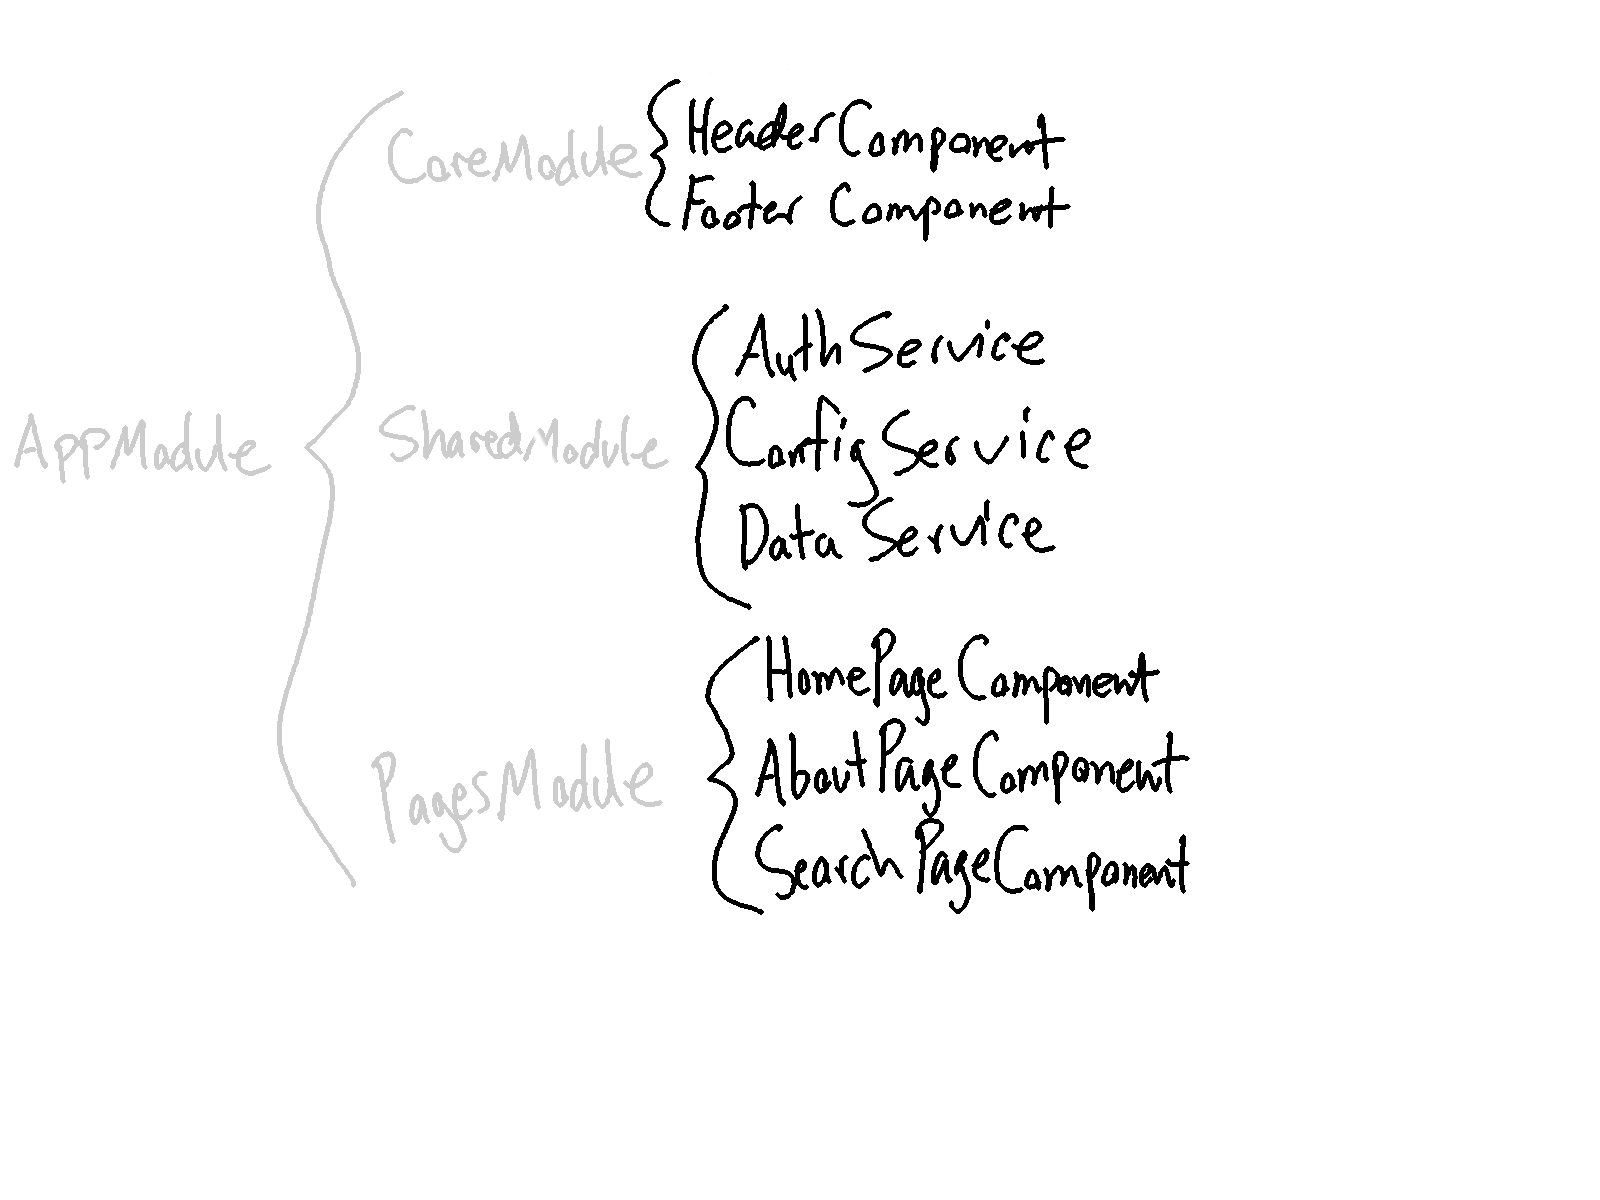 AppModule
CoreModule
HeaderComponent
Footer Component
SharedModule
AuthService
ConfigService
Data Service
PagesModule
HomePageComponent
AboutPageComponent
SearchPageComponent